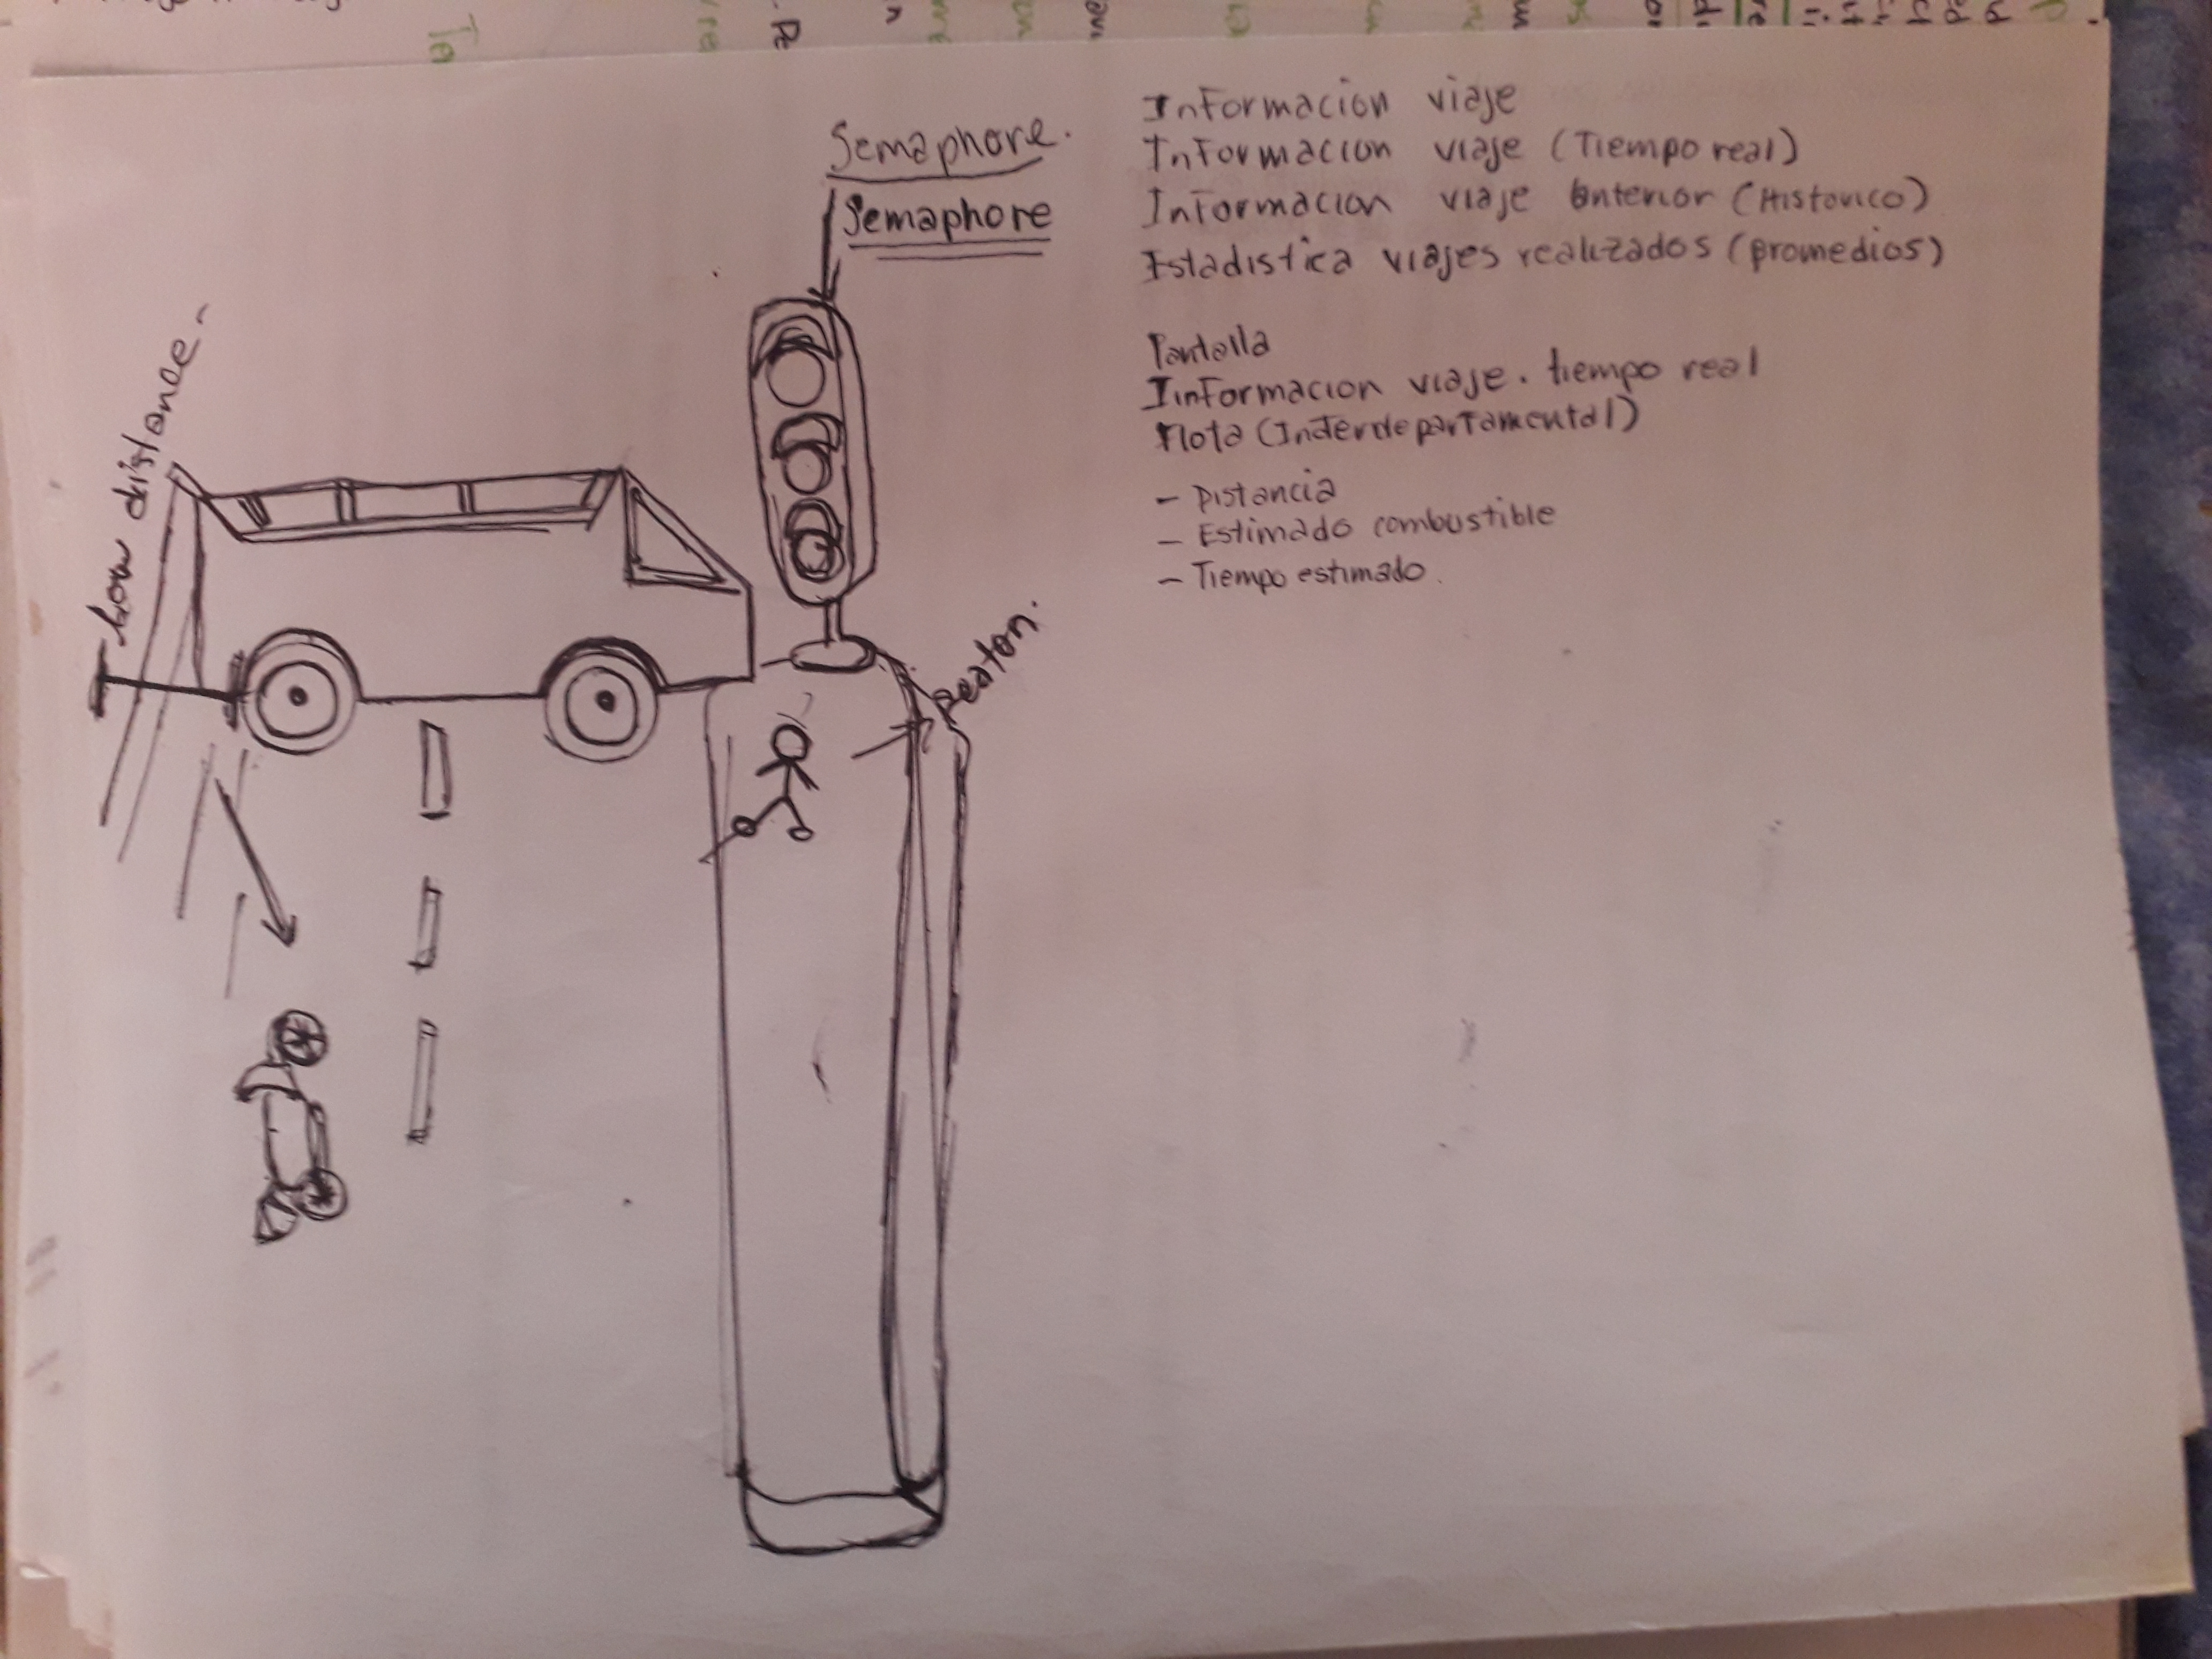 Información viaje
Informacion viaje (Tiempo real)
Informacion viaje anterior (Historico)
Estadistica viajes realizados (promedios)
Pantalla
Informacion viaje. tiempo real
flota (Inderdepartamental)
- Distancia
- Estimado combustible
- Tiempo estimado.
Semaphore.
Semaphore
Peaton.
low distance.